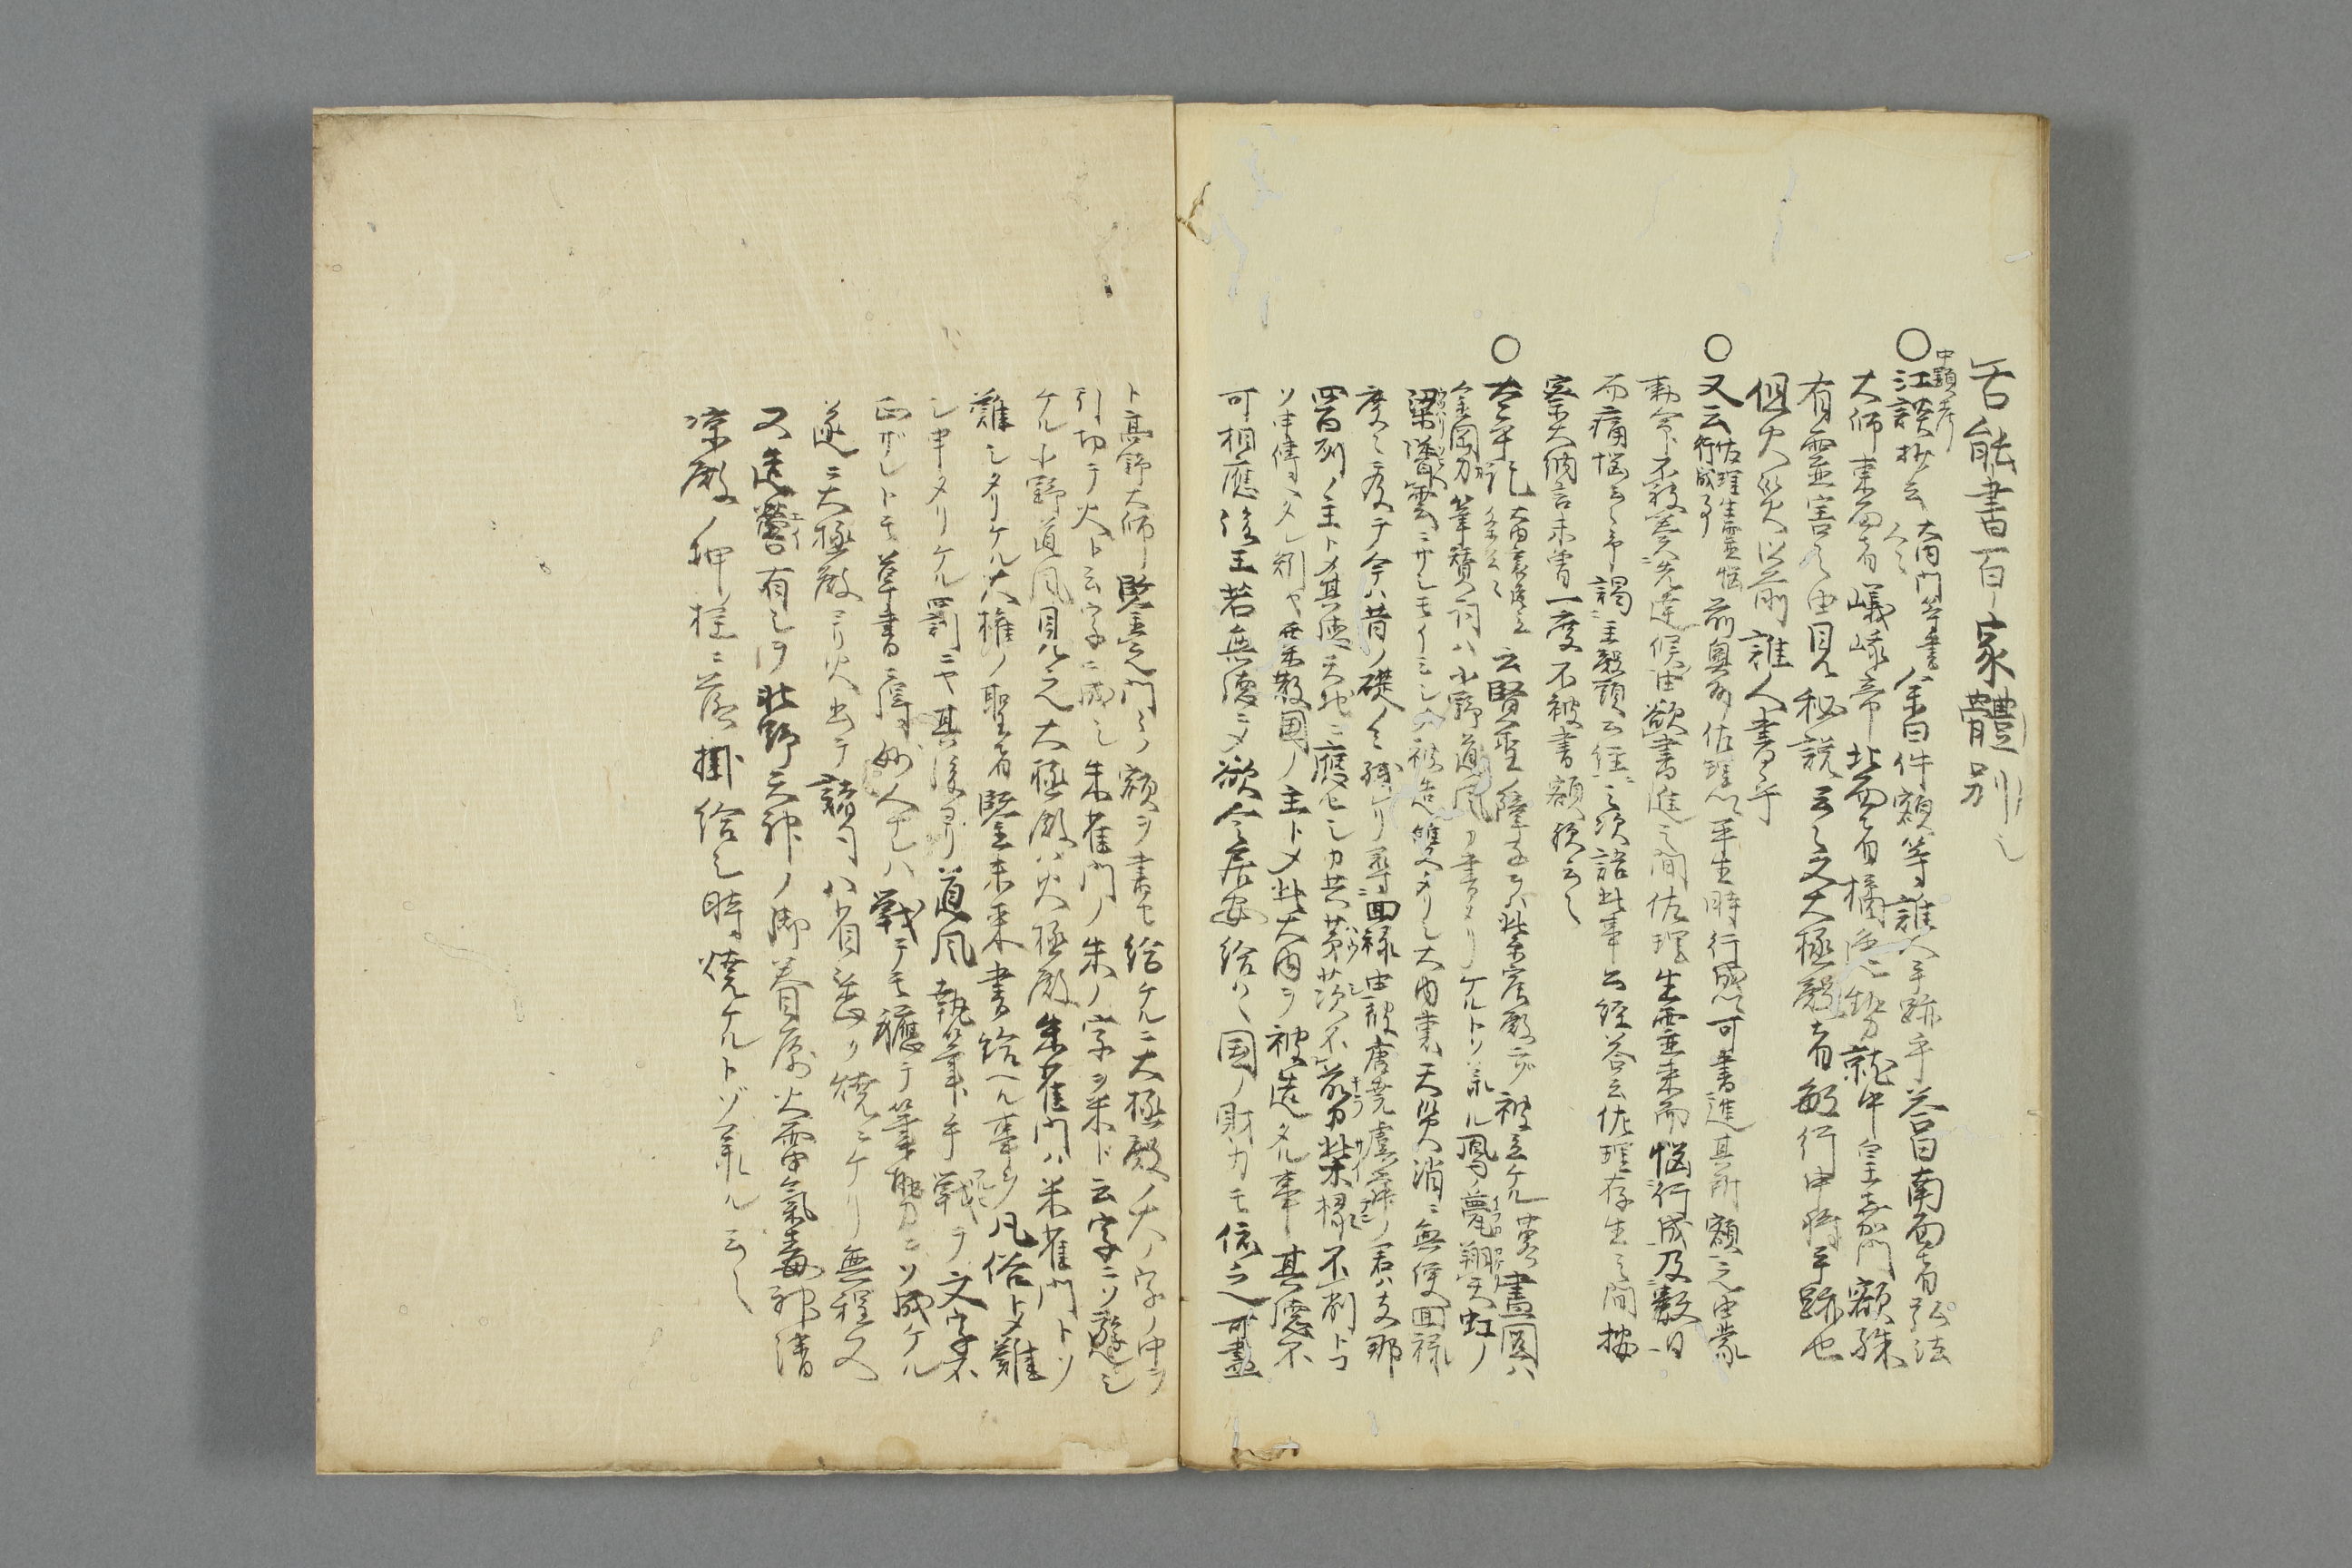 古能書百家體別之
中顕考
○江談抄云 大内門等書人々 余曰件額等誰人手跡乎答曰南面者弘法
大師東面者嵯峨帝北面者橘逸勢就中皇嘉門額殊
有霊害之由見秘説云々又大極殿者敏行中将手跡也
但火災以前誰人書乎
○又云 佐理生霊悩行成事 前奥州佐理以平生時行成可書進其所額之由蒙
勅命不敢奏先達候由欲書進之間佐理生霊来而悩行成及数日
而痛悩云々予謁主殿頭公経之次語此事公経答云佐理存生之間按
察大納言未曾一度不被書額歟云々
○太平記 大内裏造立 云賢聖ノ障子ヲハ紫宸殿ニゾ被立ケル 畫圖ハ
金岡カ筆賛詞ハ小野道風カ書タリケルトソ承ル鳳ノ甍翔天虹ノ
梁聳雲ニサシモイミシク被造雙ヘタリシ大内裏天災消ニ無便回禄
度々ニ及テ今ハ昔ノ礎ノミ残ケリ尋回禄由彼唐堯虞舜ノ君ハ支那
四百州ノ主トメ其徳天地ニ應セシカ共茅茨不剪柴椽不削トコ
ソ申傳ヘタレ況ヤ粟散国ノ主トメ此大内ヲ被造タル事其徳不
可相應後王若無徳ニメ欲令居安給ハヽ国ノ財力モ依之可盡
ト高野大師鑒之門々ノ額ヲ書セ給ケルニ大極殿ノ大ノ字ノ中ヲ
引切テ火ト云字ニ成シ朱雀門ノ朱ノ字ヲ米ト云字ニソ遊シ
ケル小野道風見之大極殿ハ火極殿朱雀門ハ米雀門トソ
難シタリケル大権ノ聖者鑒未来書給ヘル事ヲ凡俗トメ難
シ申タリケル罰ニヤ其後ヨリ道風執筆手戦テ文字不
正ザレトモ草書ニ得妙人ナレハ戦テモ書テ筆勢ニソ成ケル
遂ニ大極殿ヨリ火出テ諸司八省悉ク焼ニケリ無程又
又造營有シヲ北野天神ノ御眷属火雷氣毒神清
涼殿ノ坤柱ニ落掛給シ時焼ケルトゾ承ル云々